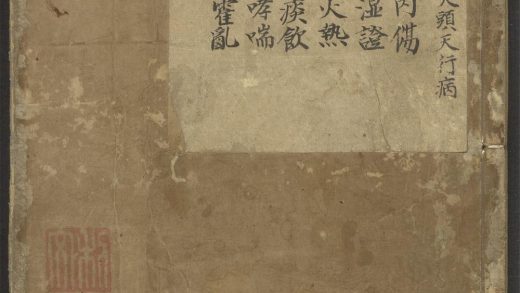 大頭天行病
內傷
湿證
火熱
痰飲
哮喘
霍亂